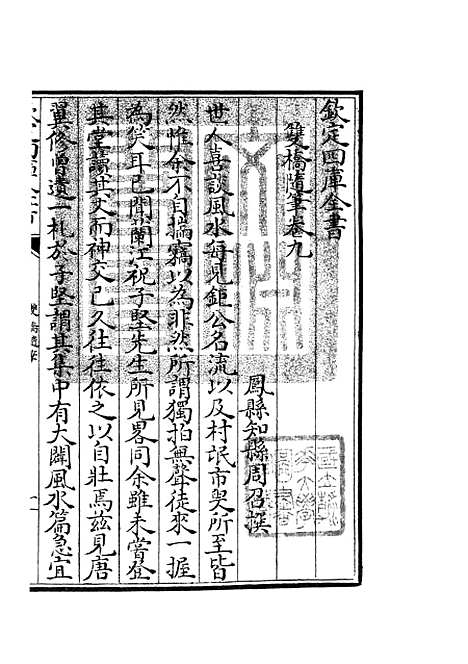 欽定四庫全書
雙橋隨筆卷九
鳳縣知縣周召撰
世人喜談風水每見鉅公名流以及村氓市奐所至皆
然惟余不自揣竊以為非然所謂獨拍無聲徒來一握
為笑耳已閱蘭江祝子堅先生所見畧同余雖未嘗登
其堂讀其文而神交已久往往依之以自壯焉兹見唐
翼修曾遺一札於子堅謂其集中有大闢風水篇急宜
雙橋隨筆
一